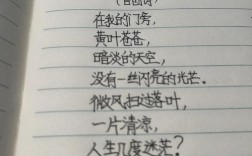 在我的门旁，
黄叶苍苍，
暗淡的天空，
没有一丝闪亮的光芒。
微风扫过落叶，
一片清凉，
人生几度迷茫？